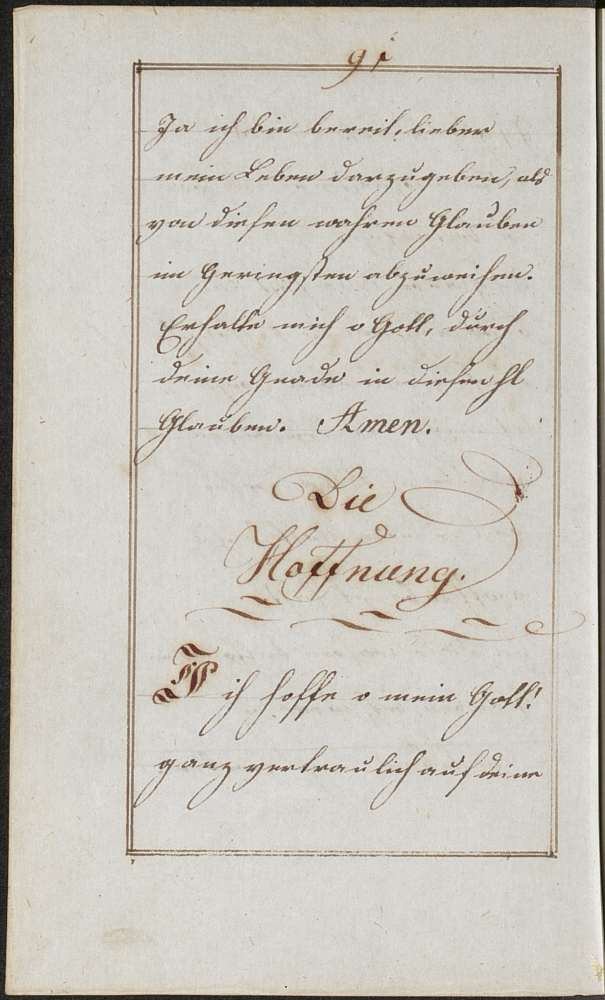 91
Ja ich bin bereit, lieber
mein Leben darzugeben, als
von diesen wahren Glauben
im Geringsten abzuweichen.
Erhalte mich o Gott, durch
deine Gnade in diesen Hl
Glauben. Amen.
Die
Hoffnung.
ich hoffe o mein Gott!
ganz vertraulich auf deine